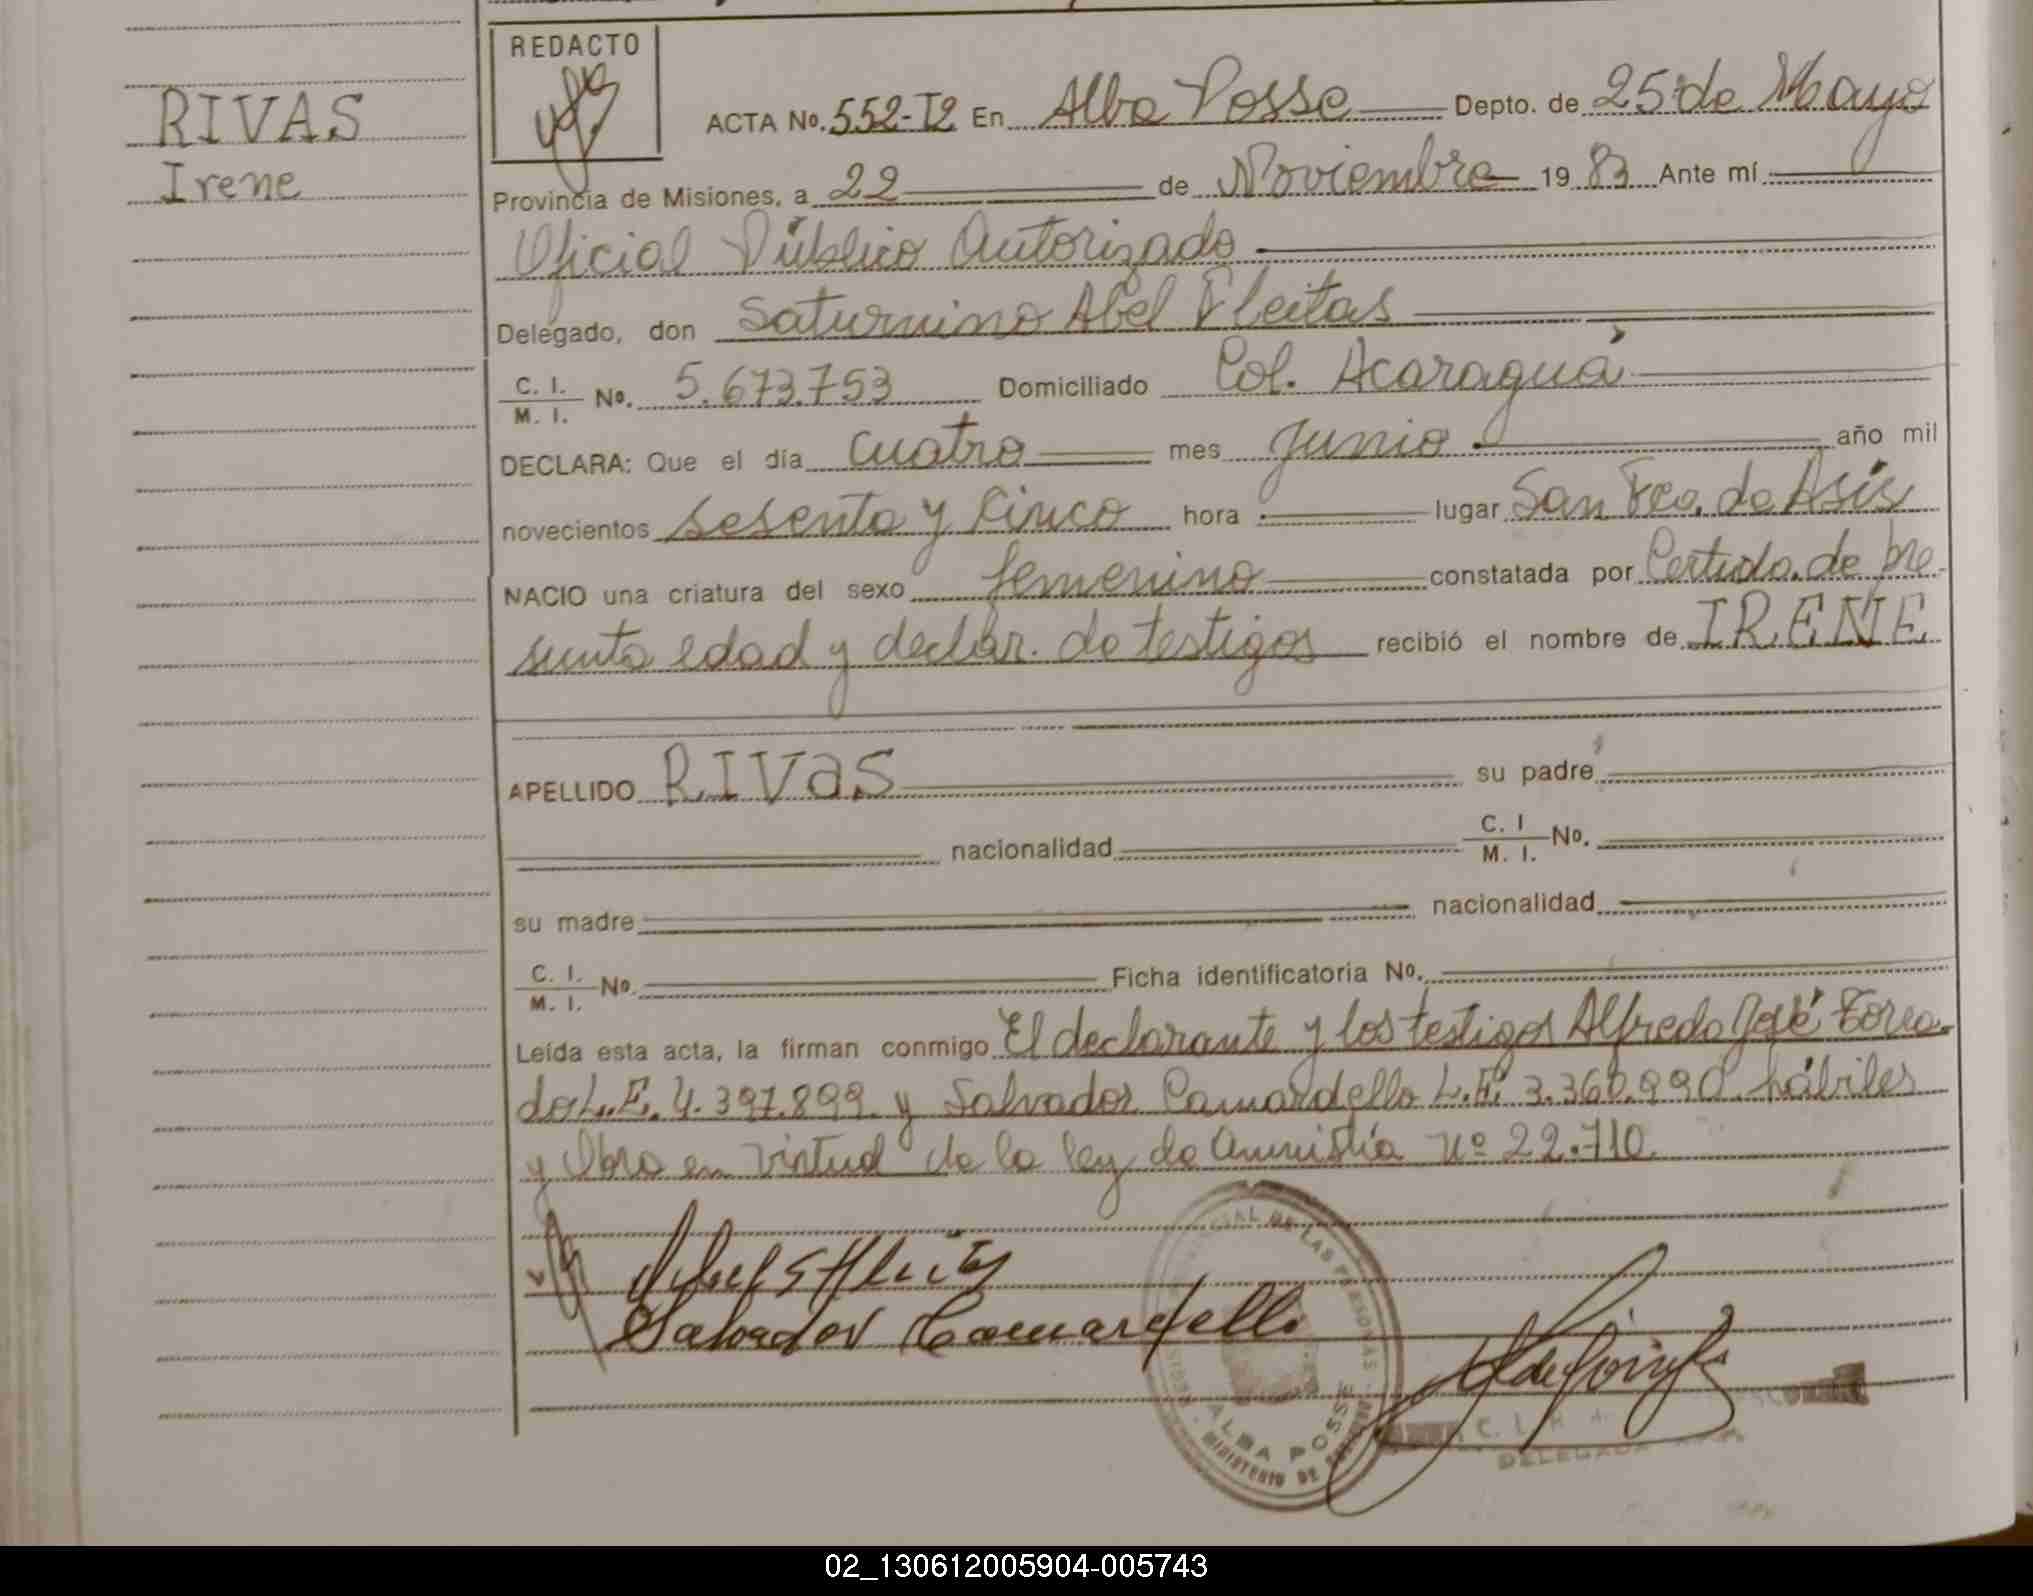 RIVAS
Irene
REDACTO
ACTA No. 552-T2 En Alba Posse Depto. de 25 de Mayo
Provincia de Misiones, a 22 de Noviembre 19 83 Ante mí
Oficial Público Autorizado
Delegado, don Saturnino Abel Fleitas
C. I. / M. I. No. 5.673.753 Domiciliado Col. Acaraguá
DECLARA: Que el día cuatro mes Junio año mil
novecientos sesenta y Cinco hora lugar San Fco. de Asís
NACIO una criatura del sexo femenino constatada por Certifdo. de pre-
sunta edad y declar. de testigos recibió el nombre de IRENE
APELLIDO RIVAS su padre
nacionalidad C. I / M. I. No.
su madre nacionalidad
C. I. / M. I. No. Ficha identificatoria No.
Leída esta acta, la firman conmigo El declarante y los testigos Alfredo José
L.E. 4.397.899 y Salvador Camardello L.E. 3.360.990 hábiles
y Obra en virtud de la ley de amnistía nº 22.710
Salvador Camardello
DE LAS PERSONAS
ALBA POSSE
MINISTERIO DE
DELEGADA
02_130612005904-005743